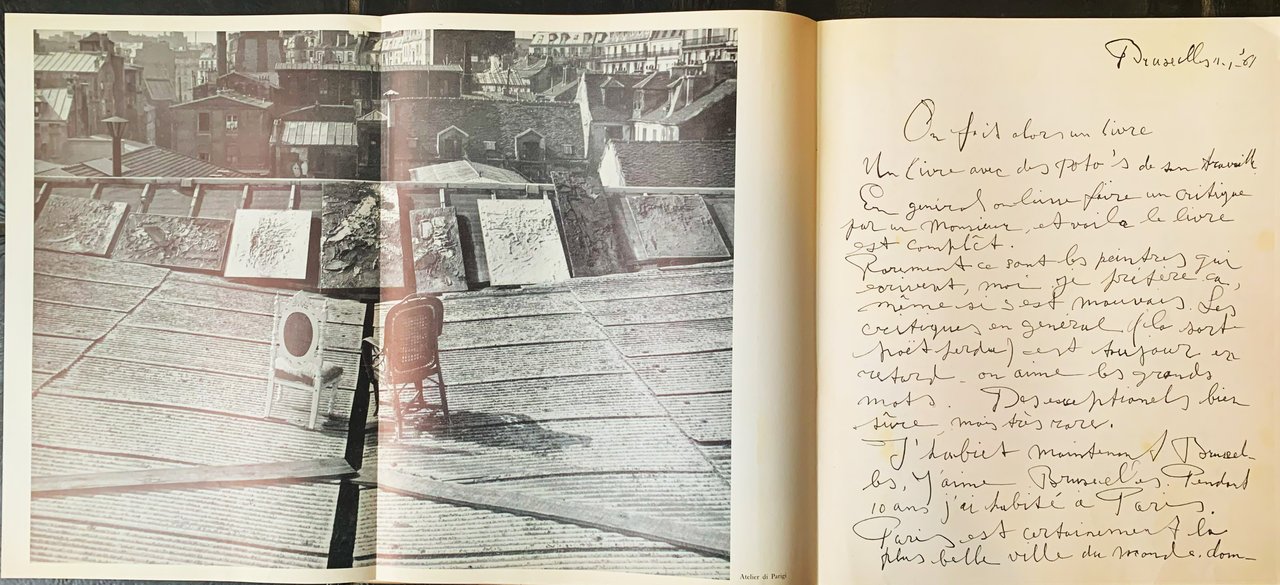 Atelier di Parigi
Bruxelles 11-1-61
On fait alors un livre
Un livre avec des foto's de son travaille
En general on laisse faire un critique
par un Monsieur, et voila le livre
est complêt.
Rarument ce sont les peintres qui
ecrivent, moi je préfère ca,
même si s'est mauvais. Les
critiques en général (la sort
poët perdu) est toujour en
retard - on aime les grands
mots. Des exseptionels bien
sûre, mais très rare.
J'habiet maintenant Bruxel-
les, j'aime Bruxelles. Pendant
10 ans j'ai habité à Paris.
Paris est certainement la
plus belle ville du monde. dom-